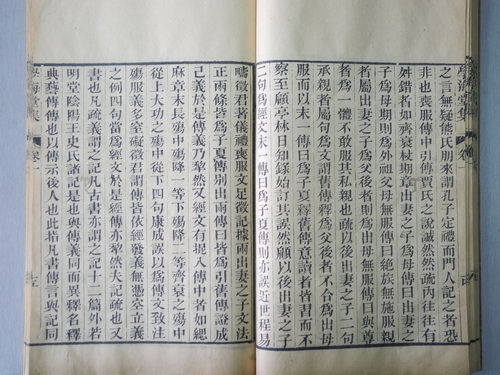 學海堂集 卷
之言無疑熊氏朋來謂孔子定禮而門人記之者恐
非也喪服傳中引傳賈氏之說誠然然疏內往往有
舛錯者如齊衰杖期章出妻之子爲母傳曰出妻之
子爲母期則爲外祖父母無服傳曰絕族無施服親
者屬出妻之子爲父後者則爲出母無服傳曰與尊
者爲一體不敢服其私親也疏以後出妻之子二句
承親者屬句爲文謂舊傳釋爲父後者不合爲出母
服而以末一傳曰爲子夏釋舊傳意讀者皆習而不
察至顧亭林日知錄始訂其誤然顧以後出妻之子
二句爲經文末一傳曰爲子夏傳則亦誤近世程易
疇徵君著儀禮喪服文足徵記據兩出妻之子文法
正兩條皆子夏傳別出兩傳曰皆爲引舊傳證成
己義於是傳義乃犂然又經文有提入傳中者如緦
麻章末長殤中殤降一等下殤降二等齊衰之殤中
從上大功之殤中從下四句康成誤以爲傳文致注
殤服義多窒礙徵君謂傳皆依經發義無憑空立義
之例四句當爲經文於是經傳亦犂然夫記疏也又
書也凡疏義謂之記凡古書亦謂之記十二篇外若
明堂陰陽王史氏諸記是也與傳義同而異釋名釋
典藝傳傳也以傳示後人也此指凡書傳言與記同
學海堂集 卷一